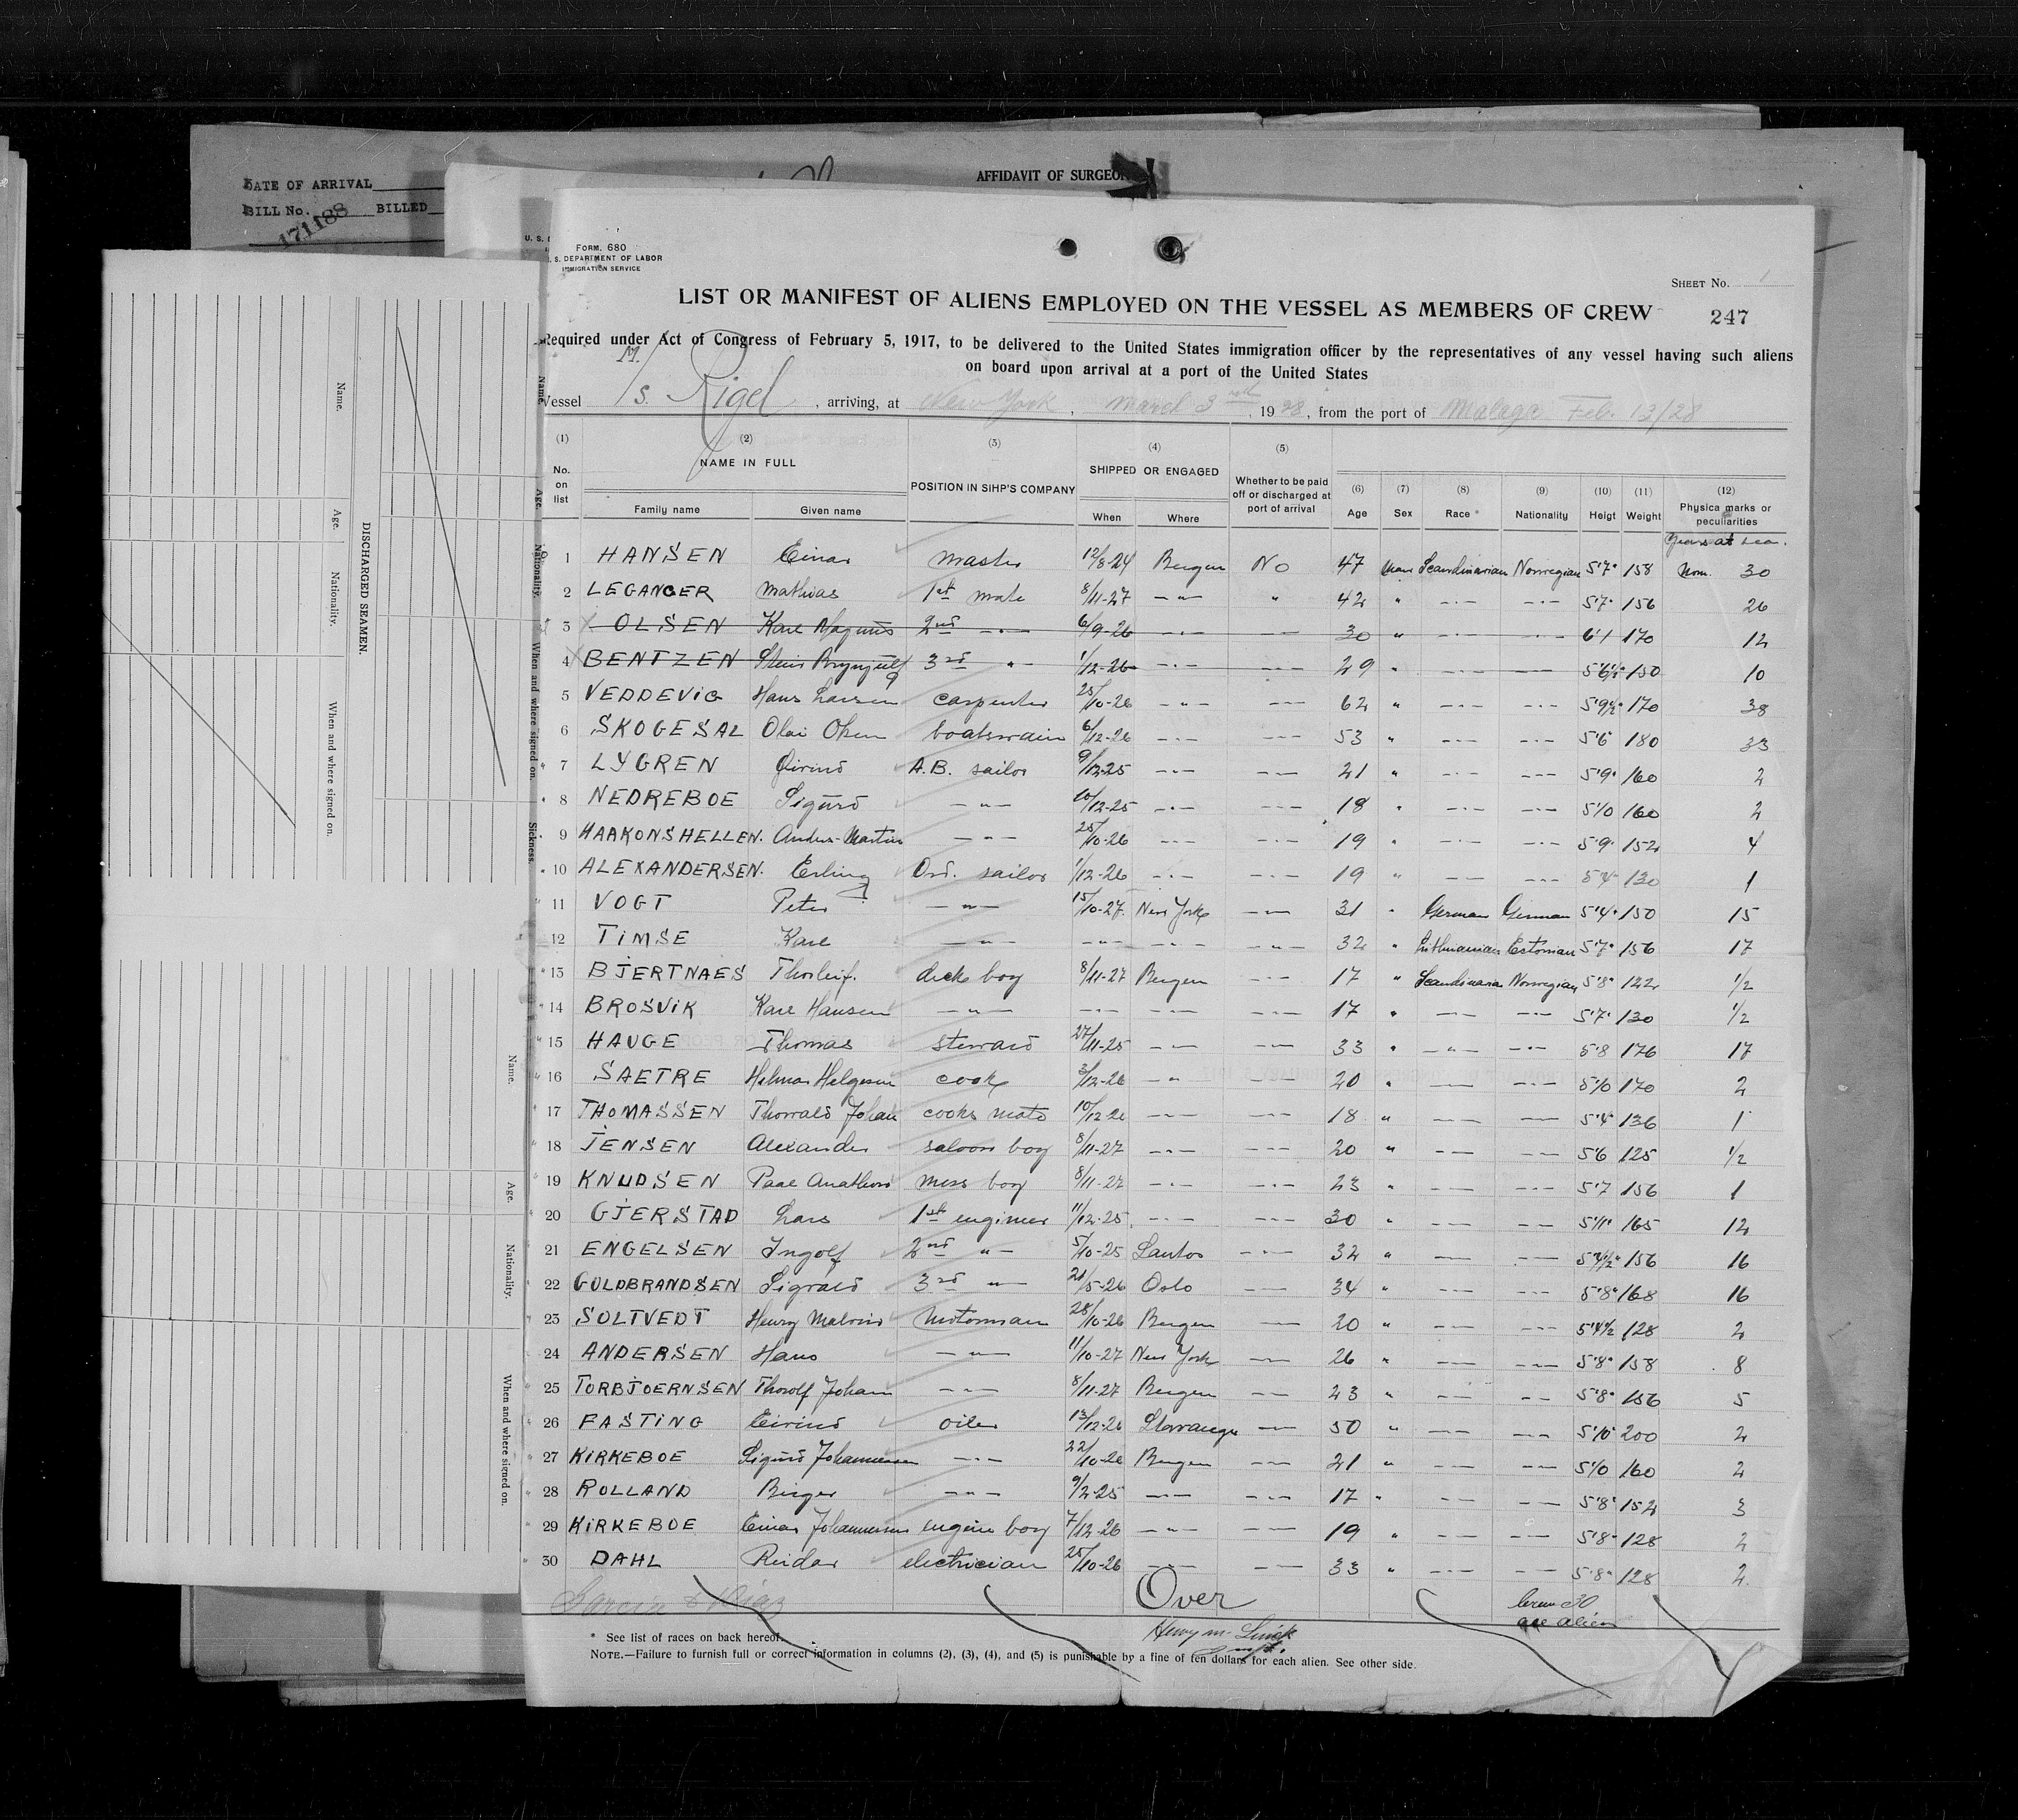 DATE OF ARRIVAL
BILL No. BILLED
171188
AFFIDAVIT OF SURGEON
FORM. 680
U. S. DEPARTMENT OF LABOR
IMMIGRATION SERVICE
SHEET No. 1
LIST OR MANIFEST OF ALIENS EMPLOYED ON THE VESSEL AS MEMBERS OF CREW
247
Required under Act of Congress of February 5, 1917, to be delivered to the United States immigration officer by the representatives of any vessel having such aliens
on board upon arrival at a port of the United States
Vessel M/S. Rigel, arriving, at New York, March 3rd, 1928, from the port of Malaga Feb. 13/28
(1) (2) (3) (4) (5) (6) (7) (8) (9) (10) (11) (12)
No. on list NAME IN FULL Family name Given name POSITION IN SIHP'S COMPANY SHIPPED OR ENGAGED When Where Whether to be paid off or discharged at port of arrival Age Sex Race * Nationality Heigt Weight Physica marks or peculiarities
Years at sea.
1 HANSEN Einar master 12/8-24 Bergen No 47 Scandinavian Norwegian 5'7" 158 30
2 LEGANGER Mathias 1st mate 8/11-27 -"- " 42 " -"- -"- 5'7" 156 26
3 OLSEN Kare Magnus 2nd -"- 6/9-26 -"- -"- 30 " -"- -"- 6'1 170 12
4 BENTZEN 3rd " 1/12-26 -"- -"- 29 " 5'6½" 150 10
5 VEDDEVIG Hans Larsen carpenter 25/10-26 -"- -"- 62 " -"- -"- 5'9½" 170 38
6 SKOGESAL Olai Olsen boatswain 6/12-26 -"- -"- 53 " -"- -"- 5'6 180 33
7 LYGREN Eivind A.B. sailor 9/12-25 -"- -"- 21 " -"- -"- 5'9" 160 2
8 NEDREBOE Sigurd -"- 10/12-25 -"- -"- 18 " -"- -"- 5'10 160 2
9 HAAKONSHELLEN. Anders Martin -"- 25/10-26 -"- -"- 19 " -"- -"- 5'9" 152 4
10 ALEXANDERSEN. Erling Ord. sailor 1/12-26 -"- -"- 19 " -"- -"- 5'4" 130 1
11 VOGT Peter -"- 15/10-27. New York -"- 31 " German German 5'4" 150 15
12 TIMSE Karl -"- -"- -"- -"- 32 " Lithuanian Estonian 5'7" 156 17
13 BJERTNAES Thorleif. deck boy 8/11-27 Bergen -"- 17 " Scandinavian Norwegian 5'8" 122 1/2
14 BROSVIK Kare Hansen -"- -"- -"- -"- 17 " -"- -"- 5'7" 130 1/2
15 HAUGE Thomas steward 27/11-25 -"- -"- 33 " -"- -"- 5'8 176 17
16 SAETRE Hilmar Helgesen cook 3/12-26 -"- -"- 20 " -"- -"- 5'10 170 2
17 THOMASSEN Thorvald Johan cooks mate 10/12-26 -"- -"- 18 " -"- -"- 5'4" 136 1
18 JENSEN Alexander saloon boy 8/11-27 -"- -"- 20 " -"- -"- 5'6 125 1/2
19 KNUDSEN mess boy 8/11-27 -"- -"- 23 " -"- -"- 5'7 156 1
20 GJERSTAD Lars 1st engineer 11/12-25. -"- -"- 30 " -"- -"- 5'11" 165 12
21 ENGELSEN Ingolf 2nd -"- 5/10-25 Santos -"- 32 " -"- -"- 156 16
22 GULDBRANDSEN Sigvald 3rd -"- 21/5-26 Oslo -"- 34 " -"- -"- 5'8" 168 16
23 SOLTVEDT Henry motorman 28/10-26 Bergen -"- 20 " -"- -"- 5'4½ 128 2
24 ANDERSEN Hans -"- 11/10-27 New York -"- 26 " -"- -"- 5'8" 158 8
25 TORBJOERNSEN Thorolf Johan -"- 8/11-27 Bergen -"- 23 " -"- -"- 5'8" 156 5
26 FASTING Eivind oiler 13/12-26 Stavanger -"- 50 " -"- -"- 5'10" 200 2
27 KIRKEBOE Sigurd Johannessen -"- 22/10-26 Bergen -"- 21 " -"- -"- 5'10 160 2
28 ROLLAND Birger -"- 9/2-25 -"- -"- 17 " -"- -"- 5'8" 152 3
29 KIRKEBOE Einar Johannessen engine boy 7/12-26 -"- -"- 19 " -"- -"- 5'8" 128 2
30 DAHL Reidar electrician 25/10-26 -"- -"- 33 " -"- -"- 5'8" 128 2
Garcia & Diaz Over
Crew 30
are aliens
* See list of races on back hereof.
NOTE.—Failure to furnish full or correct information in columns (2), (3), (4), and (5) is punishable by a fine of ten dollars for each alien. See other side.
DISCHARGED SEAMEN.
Name. Age. Nationality. When and where signed on.
Name. Age. Nationality. When and where signed on. Sickness.
Name. Age. Nationality. When and where signed on.